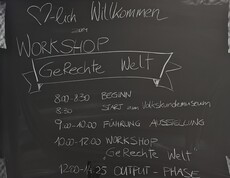 ♡-lich Willkommen
zum
WORKSHOP
GeRechte Welt
8:00-8:30 BEGINN
8:30 START am Volkskundemuseum
9:00-10:00 FÜHRUNG AUSSTELLUNG
10:00-12:00 WORKSHOP
"GeRechte Welt"
12:00-14:25 OUTPUT-PHASE